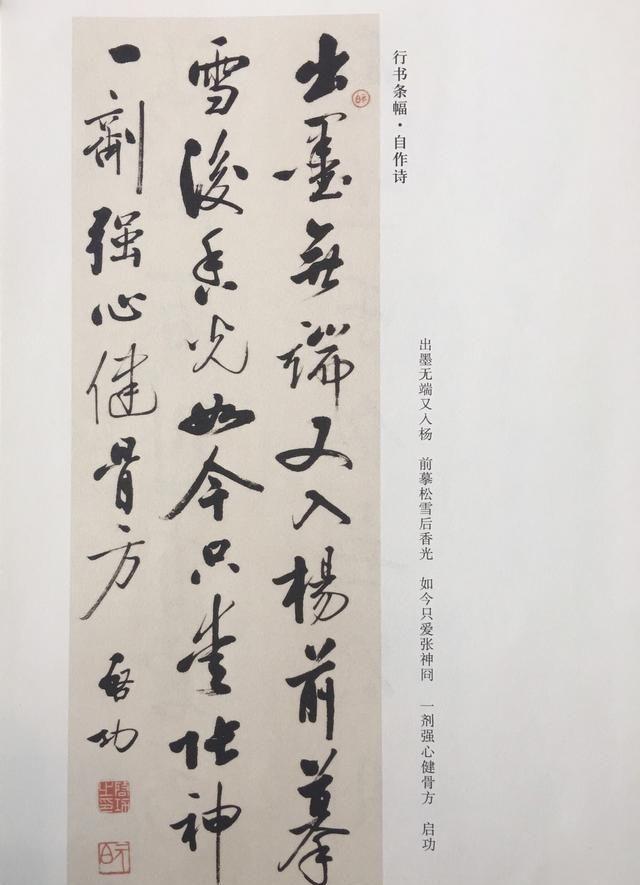 行书条幅·自作诗
出墨无端又入杨 前摹松雪后香光 如今只爱张神冏 一剂强心健骨方 启功
出墨無端又入楊前摹
雪後香光如今只愛張神
一劑强心健骨方
启功